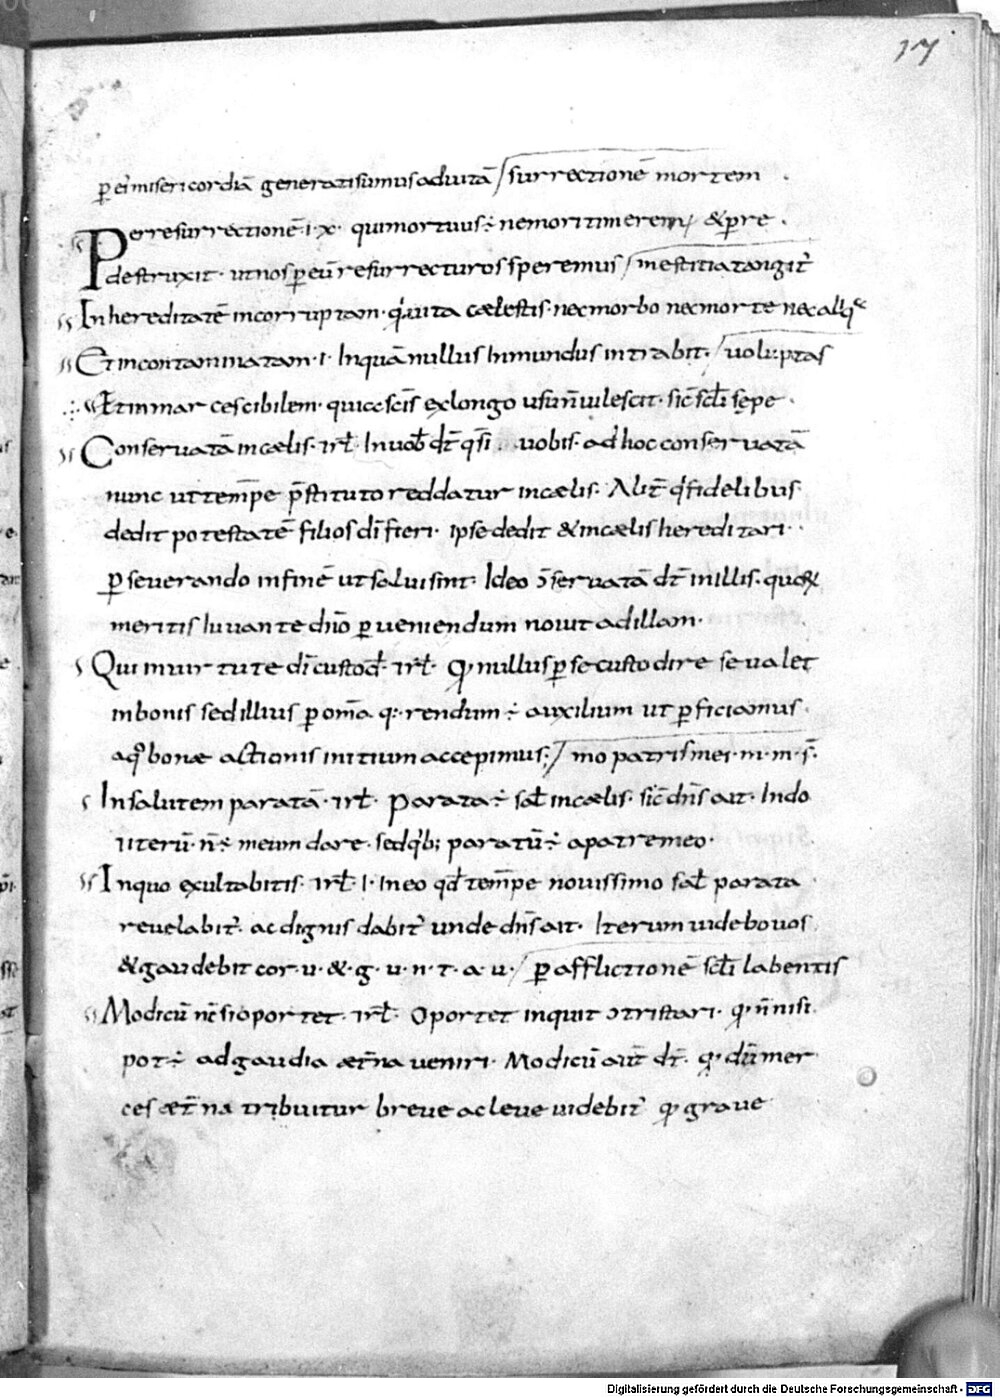 17
ꝑ ei᷒ misericordiā generati sumus ad uitā / surrectionē mortem
Per resurrectionē · i · x · qui mortuus ÷ ne mori timerem᷒ &ꝑ re ·
destruxit · ut nos ꝑ eū resurrecturos speremus / mestitia tangit᷒
In hereditatē incorruptam · q̇ uita cælestis · nec morbo nec morte nec aliq
Et incontaminatam · i · In quā nullus Inmundus intrabit · / uoluptas
Et inmarcescibilem · qui ex longo usu n̄ uilescit · sic̄ sc̄li sępe ·
Conseruatā in cælis · ir̄t · In uob̄ dt̄ q̄si · uobis · ad hoc conseruatā
nunc ut temp̄e p̄stituto reddatur in cælis · Alit̄ q̇ fidelibus
dedit potestatē filios dī fieri · ipse dedit & in cælis hereditari ·
ꝑseuerando in finē ut salui sint · Ideo ɔ̄seruatā dt̄ in illis · quoꝝ
meritis Iuuante dn̄o ꝑueniendum nouit ad illam ·
Qui in uirtute dī custod̄ · ir̄t · Q nullus ꝑ se custodire se ualet
in bonis sed illius ꝑ om̄a q · rendum ÷ auxilium ut ꝑficiamus ·
a q̊ bonæ actionis initium accepimus ; / mo patris mei · m · m · s̄ ·
In salutem paratā · ir̄t · Parata ÷ sal̄ in cælis · sic̄ dn̄s ait · In do
Iterū · n̄ ÷ meum dare · sed qb; paratū ÷ a patre meo ·
In quo exultabitis · ir̄t · I · In eo qd̄ temp̄e nouissimo sal̄ parata
reuelabit᷒ · ac dignis dabit᷒ unde dn̄s ait · Iterum uidebo uos
& gaudebit cor · u · & · g · u · n · t · a · u · / ꝑ afflictionē sc̄li labentis
Modicū nc̄ si oportet · ir̄t · Oportet inquit ɔtristari · q · n̄ nisi
pot ÷ ad gaudia æt̄na ueniri · Modicū aut̄ dt̄ · q · dū mer
ces æt̄na tribuitur breue ac leue uidebit᷒ q · graue
Digitalisierung gefördert durch die Deutsche Forschungsgemeinschaft - DFG